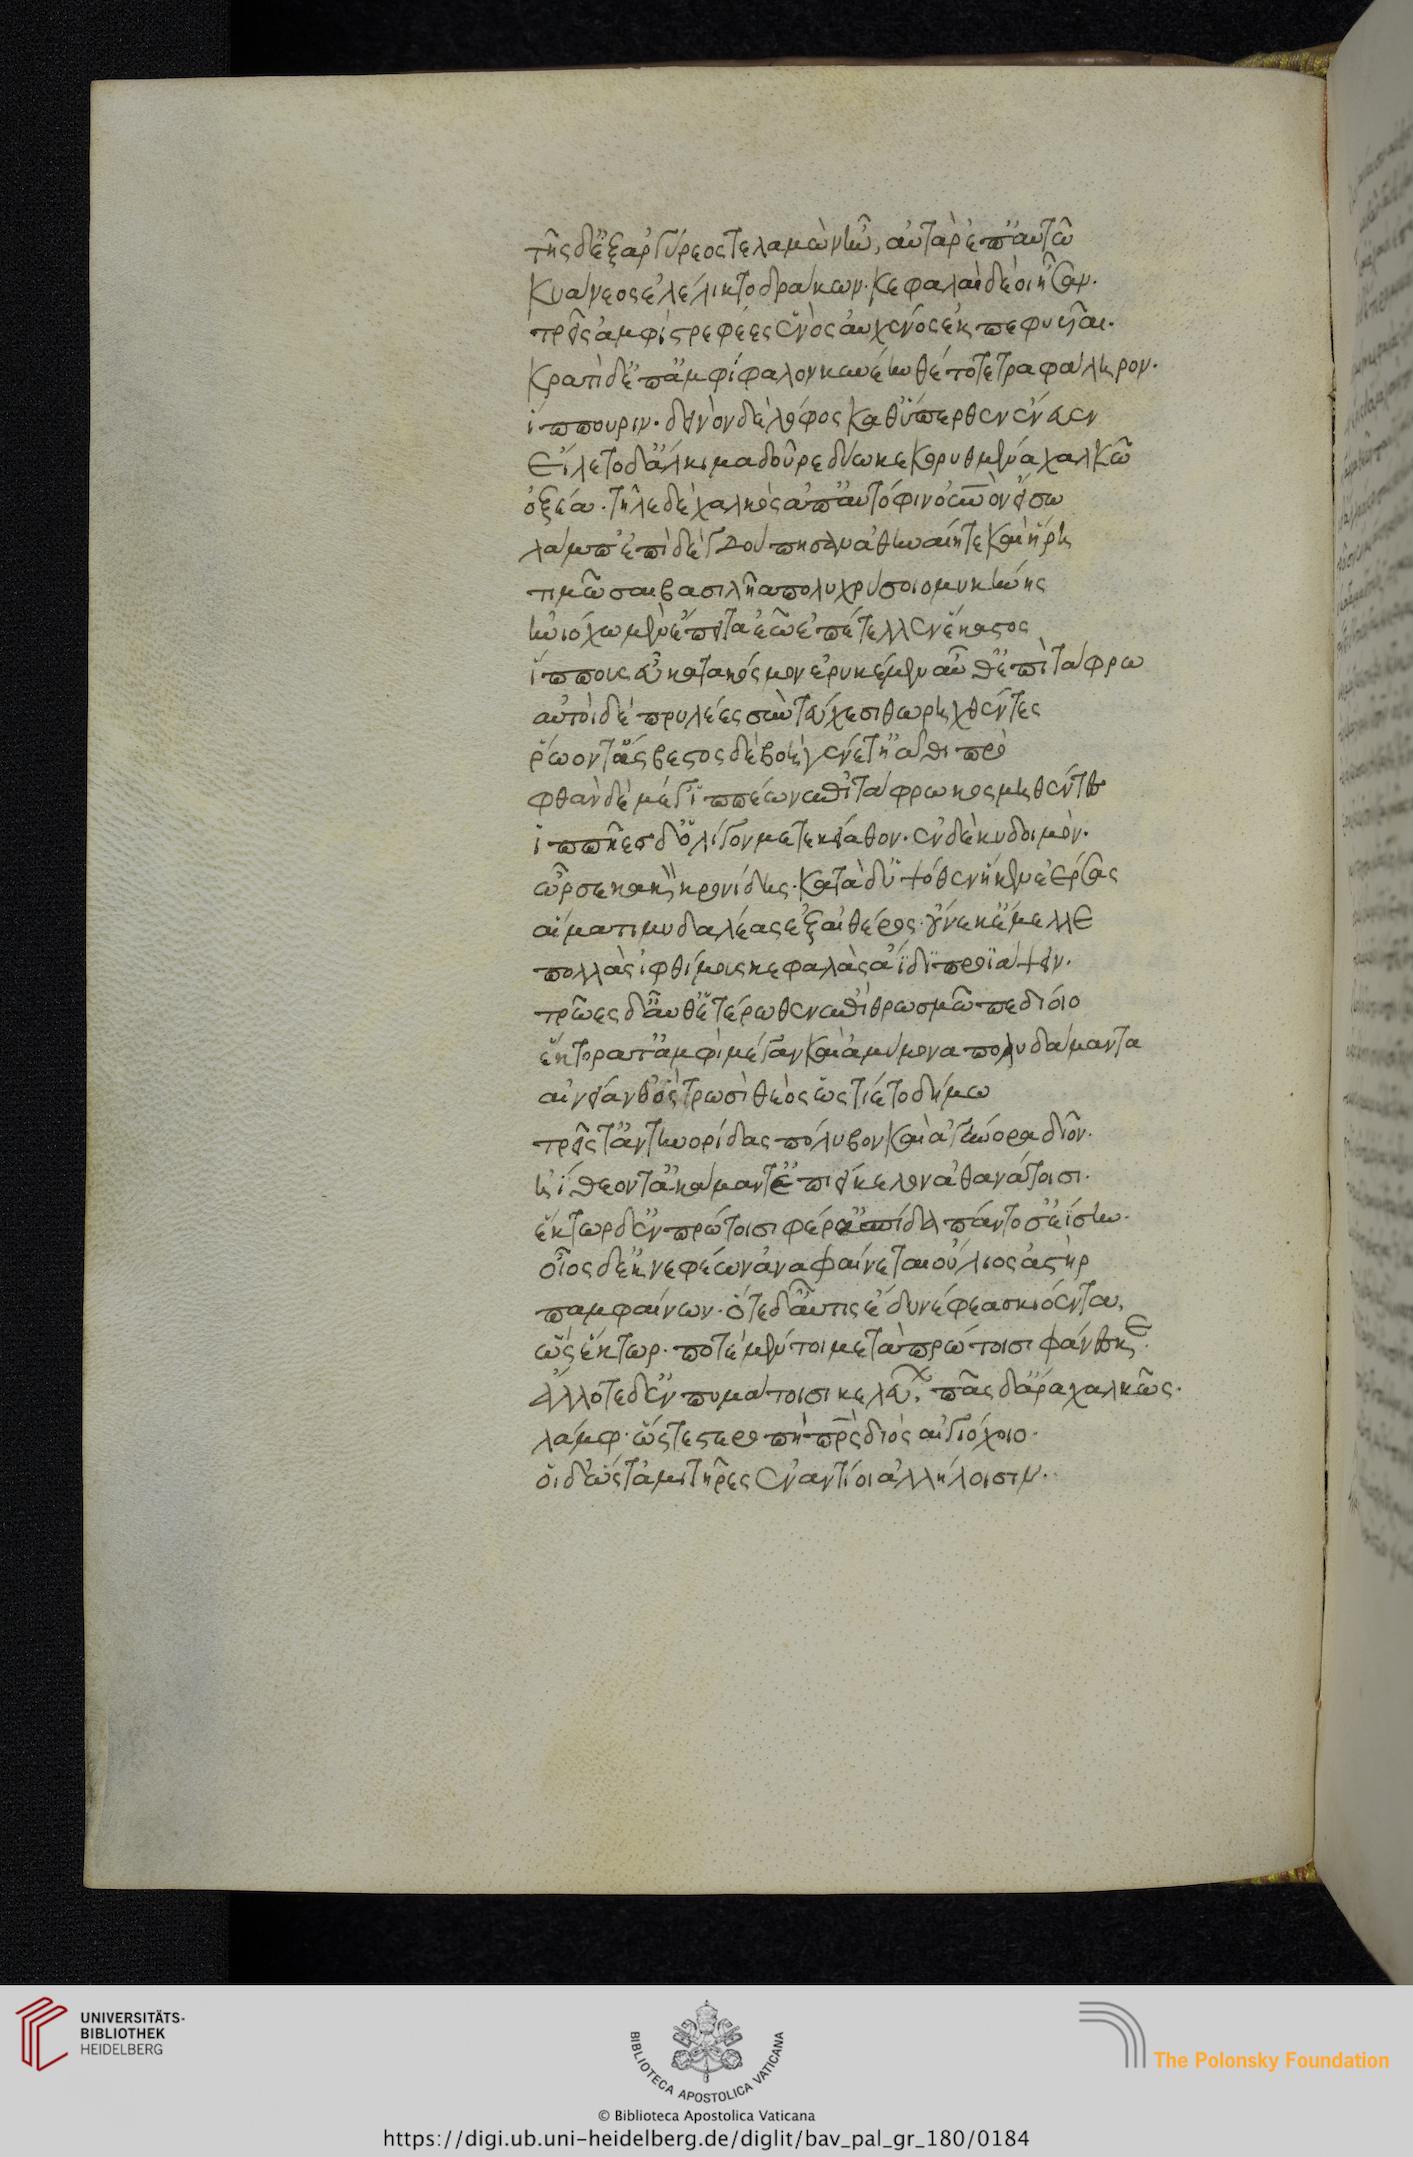 τῆς δ' ἐξ ἀργύρεος τελαμὼν ἦν, αὐτὰρ ἐπ' αὐτῶ
κυάνεος ἐλέλικτο δράκων. κεφαλαὶ δέ οἱ ἦσαν.
τρεῖς ἀμφιστρεφέες ἑνὸς αὐχένος ἐκπεφυῖαι.
κρατὶ δ' ἐπ' ἀμφίφαλον κυνέην θέτο τετραφάληρον.
ἵππουριν. δεινὸν δὲ λόφος καθύπερθεν ἔνευεν
εἵλετο δ' ἄλκιμα δοῦρε δύω κεκορυθμένα χαλκῶ
ὀξέα. τῆλε δὲ χαλκὸς ἀπ' αὐτόφιν οὐρανὸν εἴσω
λάμπ' ἐπὶ δ' ἐγδούπησαν ἀθηναίη τε καὶ ἥρη
τιμῶσαι βασιλῆα πολυχρύσοιο μυκήνης
ἡνιόχω μὲν ἔπειτα ἑῶ ἐπέτελλεν ἕκαστος
ἵππους εὖ κατὰ κόσμον ἐρυκέμεν αὖθ' ἐπὶ τάφρω
αὐτοὶ δὲ πρυλέες σὺν τεύχεσι θωρηχθέντες
ῥώοντ' ἄσβεστος δὲ βοὴ γένετ' ἠῶθι πρὸ
φθὰν δὲ μέγ' ἱππέων ἐπὶ τάφρω κοσμηθέντες
ἱππῆες δ' ὀλίγον μετεκίαθον. ἐν δὲ κυδοιμὸν.
ὦρσε κακὸν κρονίδης. κατὰ δ' ὑψόθεν ἧκεν ἐέρσας
αἵματι μυδαλέας ἐξ αἰθέρος. οὕνεκ' ἔμελλε
πολλὰς ἰφθίμους κεφαλὰς ἄϊδι προϊάψειν.
τρῶες δ' αὖθ' ἑτέρωθεν ἐπὶ θρωσμῶ πεδίοιο
ἕκτορα τ' ἀμφὶ μέγαν καὶ ἀμύμονα πολυδάμαντα
αἰνείανθ' ὃς τρωσὶ θεὸς ὣς τίετο δήμω
τρεῖς τ' ἀντηνορίδας πόλυβον καὶ ἀγήνορα δῖον.
ἠΐθεόν τ' ἀκάμαντ' ἐπιείκελον ἀθανάτοισι.
ἕκτωρ δ' ἐν πρώτοισι φέρ' ἀσπίδα πάντοσ' ἐΐσην.
οἷος δ' ἐκ νεφέων ἀναφαίνεται οὔλιος ἀστὴρ
παμφαίνων. ὁτὲ δ' αὖτις ἔδυ νέφεα σκιόεντα,
ὣς ἕκτωρ. ποτὲ μέν τοι μετὰ πρώτοισι φάνεσκε.
ἄλλοτε δ' ἐν πυμάτοισι κελεύων. πᾶς δ' ἄρα χαλκῶς.
λάμφ. ὥς τε στεροπὴ πρὸς διὸς αἰγιόχοιο.
οἱ δ' ὥς τ' ἀμητῆρες ἐναντίοι ἀλλήλοισιν.
UNIVERSITÄTS-
BIBLIOTHEK
HEIDELBERG
BIBLIOTECA APOSTOLICA VATICANA
The Polonsky Foundation
© Biblioteca Apostolica Vaticana
https://digi.ub.uni-heidelberg.de/diglit/bav_pal_gr_180/0184